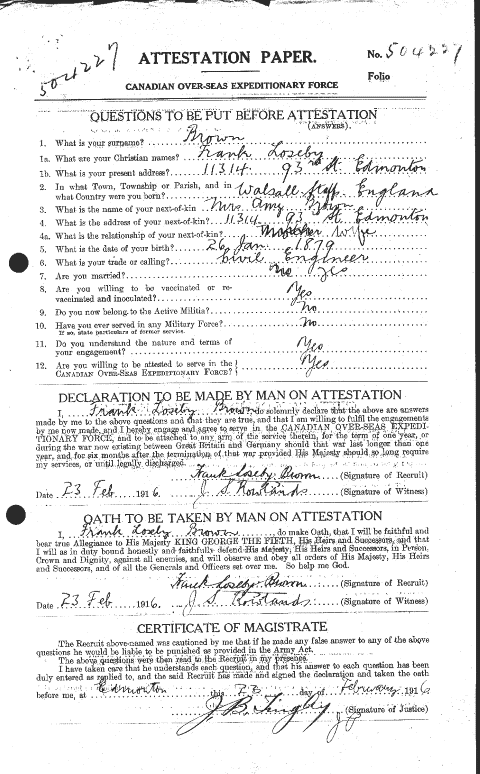 504227
ATTESTATION PAPER.
No. 504227
Folio
CANADIAN OVER-SEAS EXPEDITIONARY FORCE
QUESTIONS TO BE PUT BEFORE ATTESTATION
(ANSWERS).
1. What is your surname? Brown
1a. What are your Christian names? Frank Loseby
1b. What is your present address? 11314 93rd St. Edmonton
2. In what Town, Township or Parish, and in
what Country were you born? Walsall Staff. England
3. What is the name of your next-of-kin? Mrs. Amy Brown
4. What is the address of your next-of-kin? 11314 93 St. Edmonton
4a. What is the relationship of your next-of-kin? Wife
5. What is the date of your birth? 26 Jan. 1879
6. What is your trade or calling? Civil Engineer
7. Are you married? No Yes
8. Are you willing to be vaccinated or re-
vaccinated and inoculated? Yes
9. Do you now belong to the Active Militia? No
10. Have you ever served in any Military Force? No.
If so, state particulars of former service.
11. Do you understand the nature and terms of
your engagement? Yes
12. Are you willing to be attested to serve in the
CANADIAN OVER-SEAS EXPEDITIONARY FORCE? Yes.
DECLARATION TO BE MADE BY MAN ON ATTESTATION
I, Frank Loseby Brown do solemnly declare that the above are answers
made by me to the above questions and that they are true, and that I am willing to fulfil the engagements
by me now made, and I hereby engage and agree to serve in the CANADIAN OVER-SEAS EXPEDI-
TIONARY FORCE, and to be attached to any arm of the service therein, for the term of one year, or
during the war now existing between Great Britain and Germany should that war last longer than one
year, and for six months after the termination of that war provided His Majesty should so long require
my services, or until legally discharged.
Frank Loseby Brown (Signature of Recruit)
Date 23 Feb 1916 J. S. Rowlands (Signature of Witness)
OATH TO BE TAKEN BY MAN ON ATTESTATION
I, Frank Loseby Brown do make Oath, that I will be faithful and
bear true Allegiance to His Majesty KING GEORGE THE FIFTH, His Heirs and Successors, and that
I will as in duty bound honestly and faithfully defend His Majesty, His Heirs and Successors, in Person,
Crown and Dignity, against all enemies, and will observe and obey all orders of His Majesty, His Heirs
and Successors, and of all the Generals and Officers set over me. So help me God.
Frank Loseby Brown (Signature of Recruit)
Date 23 Feb 1916. J. S. Rowlands (Signature of Witness)
CERTIFICATE OF MAGISTRATE
The Recruit above-named was cautioned by me that if he made any false answer to any of the above
questions he would be liable to be punished as provided in the Army Act.
The above questions were then read to the Recruit in my presence.
I have taken care that he understands each question, and that his answer to each question has been
duly entered as replied to, and the said Recruit has made and signed the declaration and taken the oath
before me, at Edmonton this 23 day of February 1916
J. B. Tingley (Signature of Justice)
J P